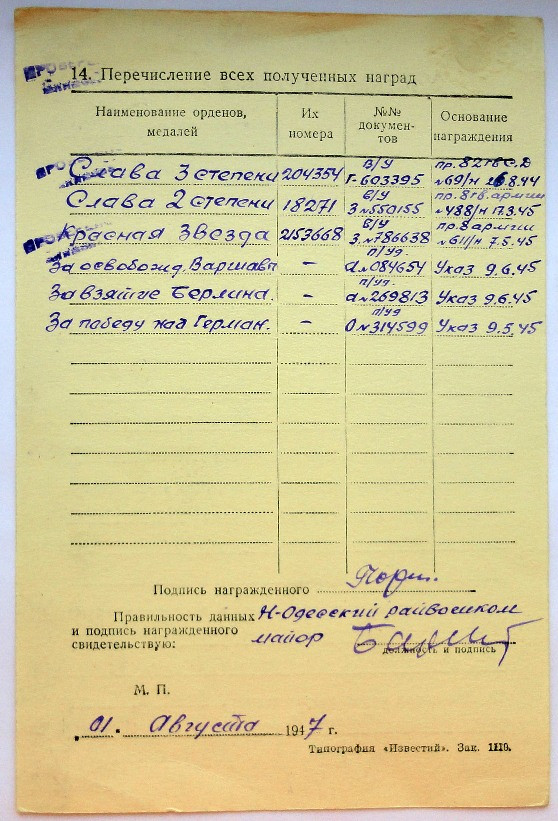 14. Перечисление всех полученных наград
Наименование орденов, медалей
Их номера
№№ докумен-тов
Основание награждения
в/у пр. 82 гв С.Д
Слава 3 степени 204354 Г-603395 №69/н 8.44
в/у пр. 8 гв. армии
Слава 2 степени 18271 З №550155 №488/н 17.3.45
в/у пр. 8 армии
Красная Звезда 2153668 З.№786638 №611/н 7.5.45
п/уд.
За освобожд. Варшавы – а№084654 Указ 9.6.45
п/уд.
За взятие Берлина. – а№269813 Указ 9.6.45
п/уд
За победу над Герман. – О№314599 Указ 9.5.45
Подпись награжденного
Правильность данных Н-Одесский райвоенком
и подпись награжденного майор
свидетельствую: должность и подпись
М. П.
„01" Августа 1947 г.
Типография «Известий». Зак. 1110.